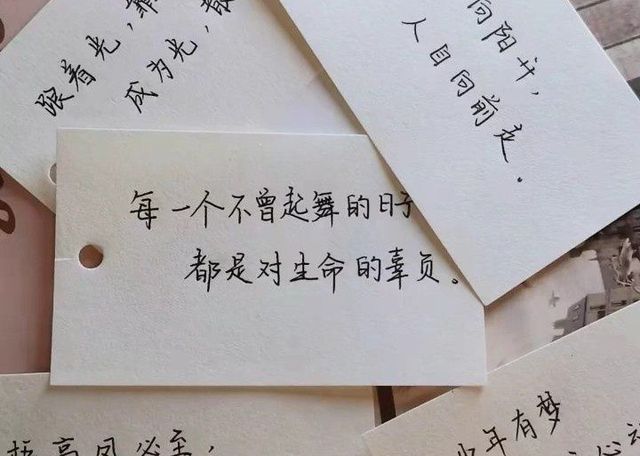 跟着光，
成为光，
向阳开，
人自向前走。
每一个不曾起舞的日子
都是对生命的辜负。
高凤必至，
少年有梦
心